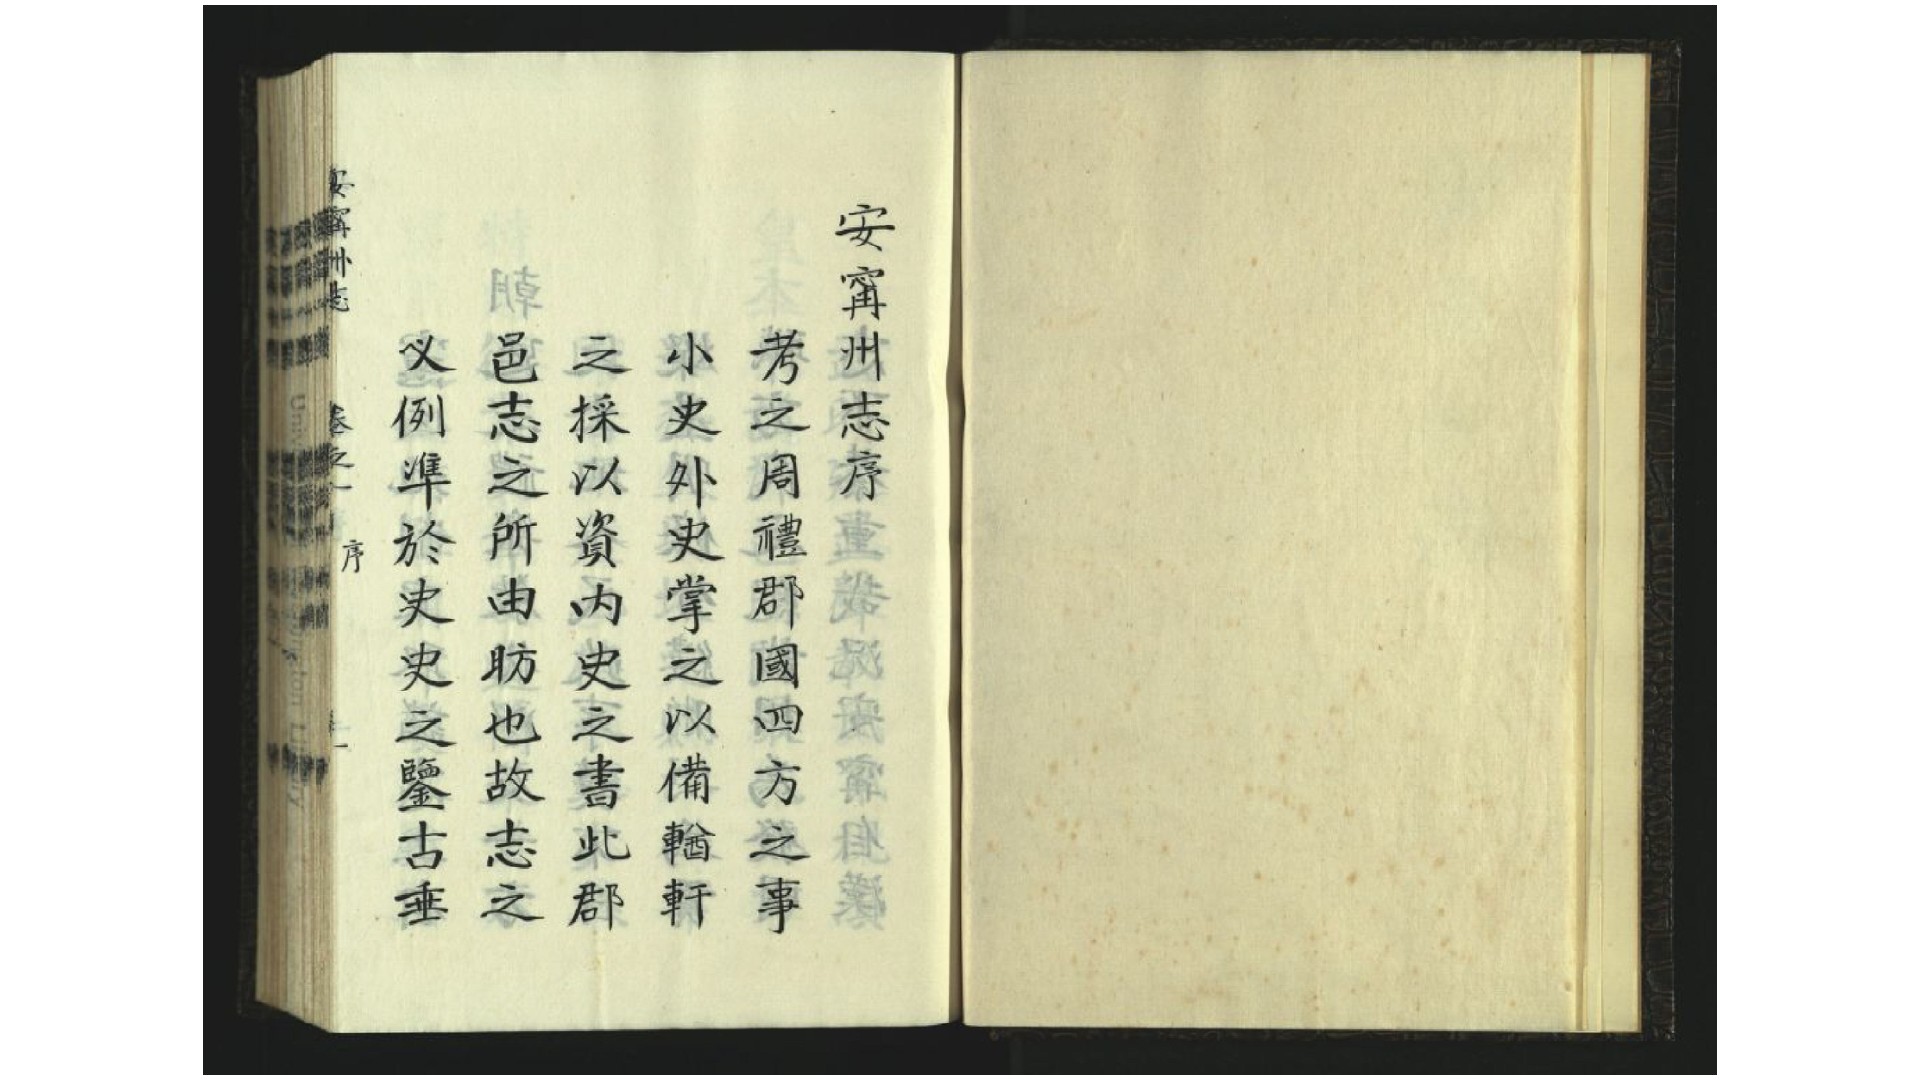 安甯州志序
考之周禮郡國四方之事
小史外史掌之以備輶軒
之採以資內史之書此郡
邑志之所由昉也故志之
义例準於史史之鑒古垂
安甯州志
卷之一
序